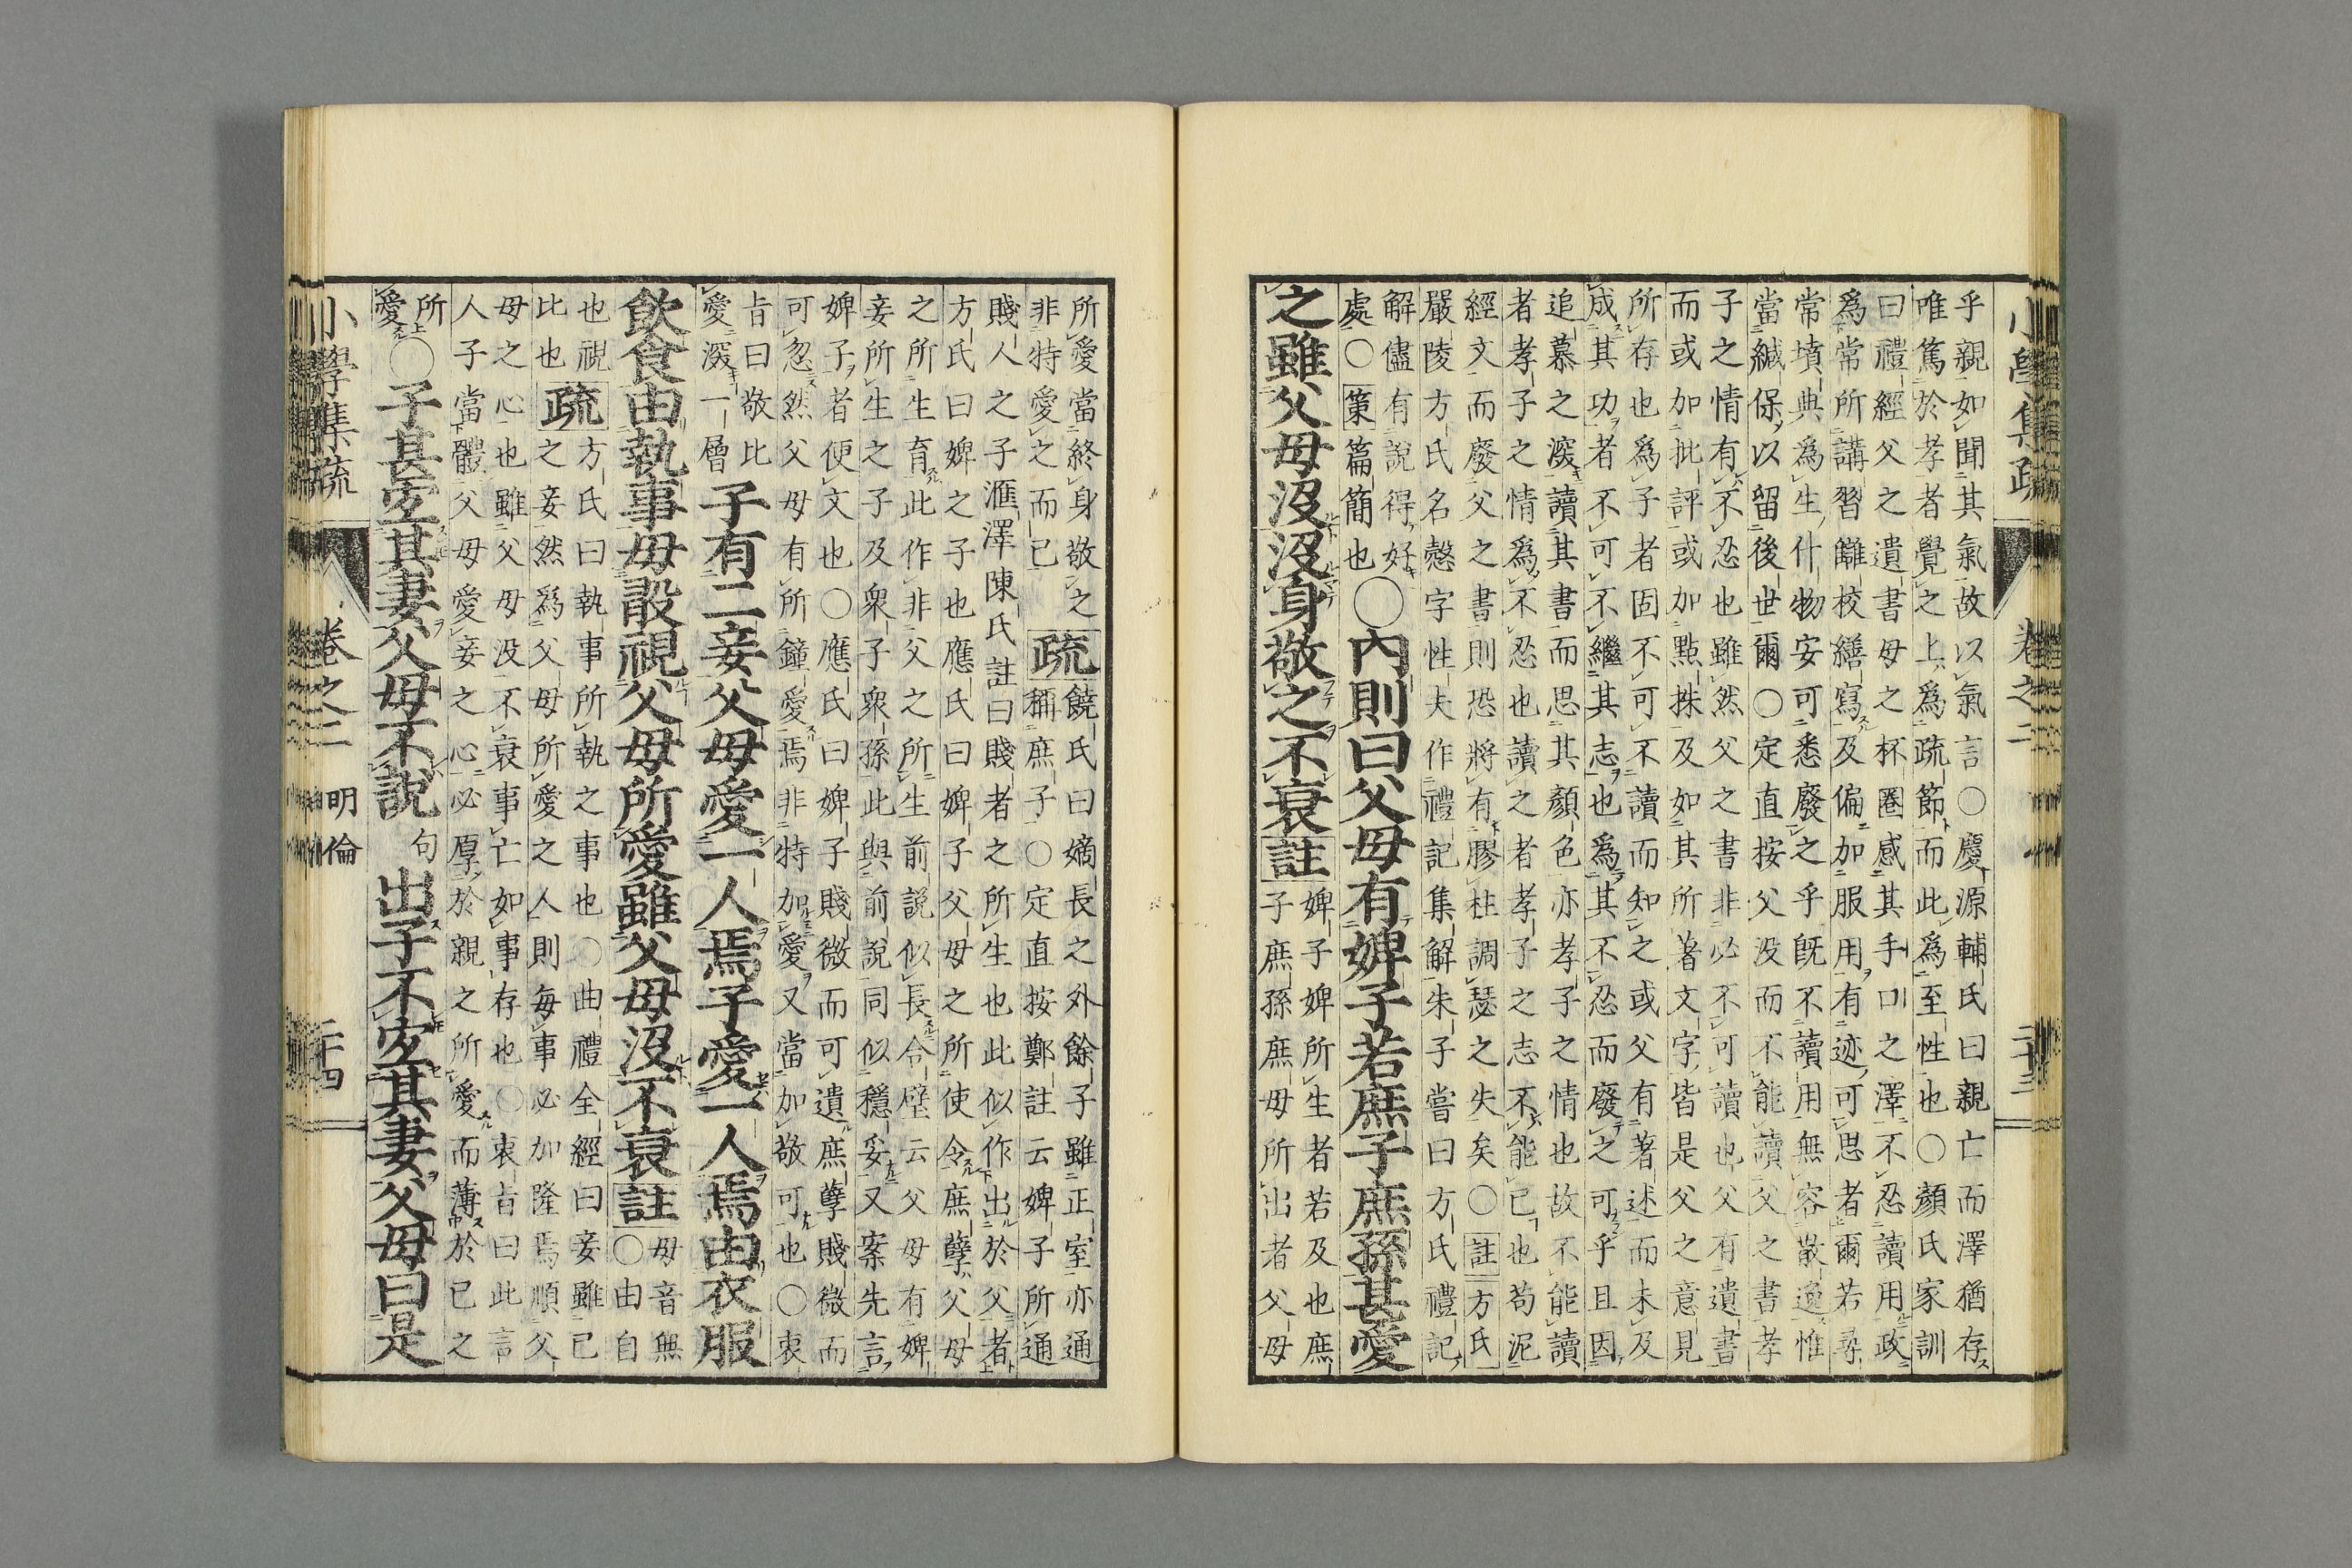 小學集疏 卷之二 二十三
乎親如聞其氣故以氣言○慶源輔氏曰親亡而澤猶存
唯篤於孝者覺之上爲疏節而此爲至性也○顏氏家訓
曰禮經父之遺書母之杯圈感其手口之澤不忍讀用政
爲常所講習讎校繕寫及偏加服用有迹可思者爾若尋
常墳典爲生什物安可悉廢之乎旣不讀用無容散逸惟
當緘保以留後世爾○定直按父没而不能讀父之書孝
子之情有不忍也雖然父之書非必不可讀也父有遺書
而或加批評或加點抹及如其所著文字皆是父之意見
所存也爲子者固不可不讀而知之或父有著述而未及
成其功者不可不繼其志也爲其不忍而廢之可乎且因
追慕之深讀其書而思其顏色亦孝子之情也故不能讀
者孝子之情爲不忍也讀之者孝子之志不能已也苟泥
經文而廢父之書則恐將有膠柱調瑟之失矣○註方氏
嚴陵方氏名慤字性夫作禮記集解朱子嘗曰方氏禮記
解儘有說得好
處○策篇簡也○內則曰父母有婢子若庶子庶孫甚愛
之雖父母沒沒身敬之不衰註婢子婢所生者若及也庶
子庶孫庶母所出者父母
所愛當終身敬之疏饒氏曰嫡長之外餘子雖正室亦通
非特愛之而已稱庶子○定直按鄭註云婢子所通
賤人之子滙澤陳氏註曰賤者之所生也此似作出於父者
方氏曰婢之子也應氏曰婢子父母之所使令庶孽父母
之所生育此作非父之所生前說似長令璧云父母有婢
妾所生之子及衆子衆孫此與前說同似穩妥又案先言
婢子者便文也○應氏曰婢子賤微而可遺庶孽賤微而
可忽然父母有所鐘愛焉非特加愛又當加敬可也○衷
旨曰敬比
愛深一層子有二妾父母愛一人焉子愛一人焉由衣服
飲食由執事毋敢視父母所愛雖父母沒不衰註毋音無
○由自
也視疏方氏曰執事所執之事也○曲禮全經曰妾雖己
比也之妾然爲父母所愛之人則每事必加隆焉順父
母之心也雖父母没不衰事亡如事存也○衷旨曰此言
人子當體父母愛妾之心必厚於親之所愛而薄於己之
所
愛○子甚宜其妻父母不說句出子不宜其妻父母曰是
小學集疏 卷之二 明倫 二十四